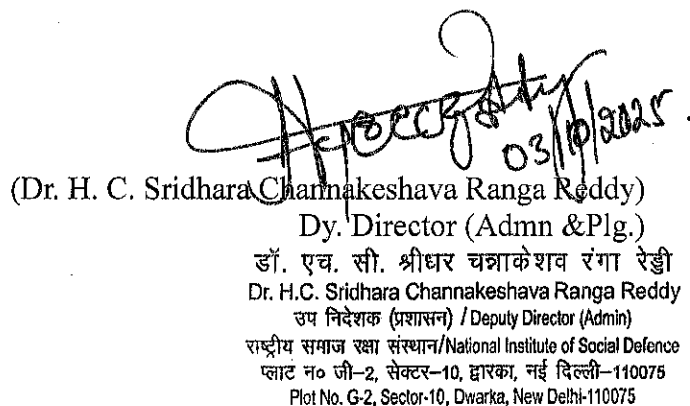 03/10/2025
(Dr. H. C. Sridhara Channakeshava Ranga Reddy)
Dy. Director (Admn &Plg.)
डॉ. एच. सी. श्रीधर चन्नाकेशव रंगा रेड्डी
Dr. H.C. Sridhara Channakeshava Ranga Reddy
उप निदेशक (प्रशासन) / Deputy Director (Admin)
राष्ट्रीय समाज रक्षा संस्थान/National Institute of Social Defence
प्लाट न० जी–2, सेक्टर–10, द्वारका, नई दिल्ली–110075
Plot No. G-2, Sector-10, Dwarka, New Delhi-110075